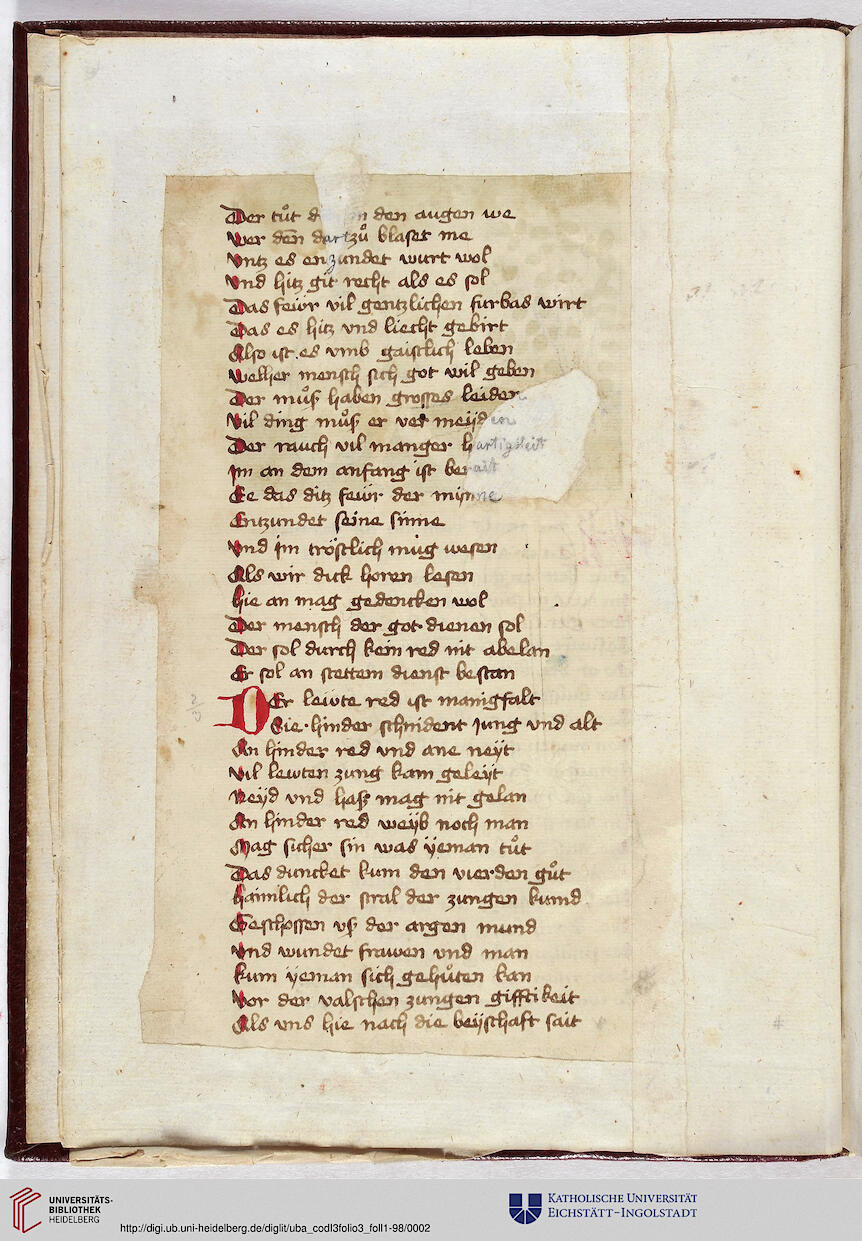 Der tůt d n den augen we
Wer den dartzů blaset me
Vntz es enzundet wurt wol
Vnd hitz git recht als es sol
Das feẅr vil gentzlichen furbas wirt
Das es hitz vnd liecht gebirt
Also ist es vmb gaistlich leben
Welher mensch sich got wil geben
Der můß haben grosses leiden
Vil ding můß er ver meÿden
Der rauch vil manger hartigkeit
Jm an dem anfang ist berait
Ee das ditz feẅr der mÿnne
Entzundet seine sinne
Vnd jm tröstlich mug wesen
Als wir dick horen lesen
Hie an mag gedencken wol
Der mensch der got dienen sol
Der sol durch kein red nit abelan
Er sol an stettem dienst bestan
DEr lewte red ist manigfalt
Sie hinder schnident jung vnd alt
An hinder red vnd ane neÿt
Vil lewten zung kam geleÿt
Neÿd vnd haß mag nit gelan
An hinder red weÿb noch man
Mag sicher sin was ÿeman tůt
Das duncket kum den vierden gůt
Haimlich der stral der zungen kumd
Geschossen vß der argen mund
Vnd wundet frawen vnd man
Kum ÿeman sich gehůten kan
Vor der valschen zungen gifftikeit
Als vns hie nach die beÿschaft sait
2/3
UNIVERSITÄTS-
BIBLIOTHEK
HEIDELBERG
http://digi.ub.uni-heidelberg.de/diglit/uba_codI3folio3_foll1-98/0002
KATHOLISCHE UNIVERSITÄT
EICHSTÄTT-INGOLSTADT